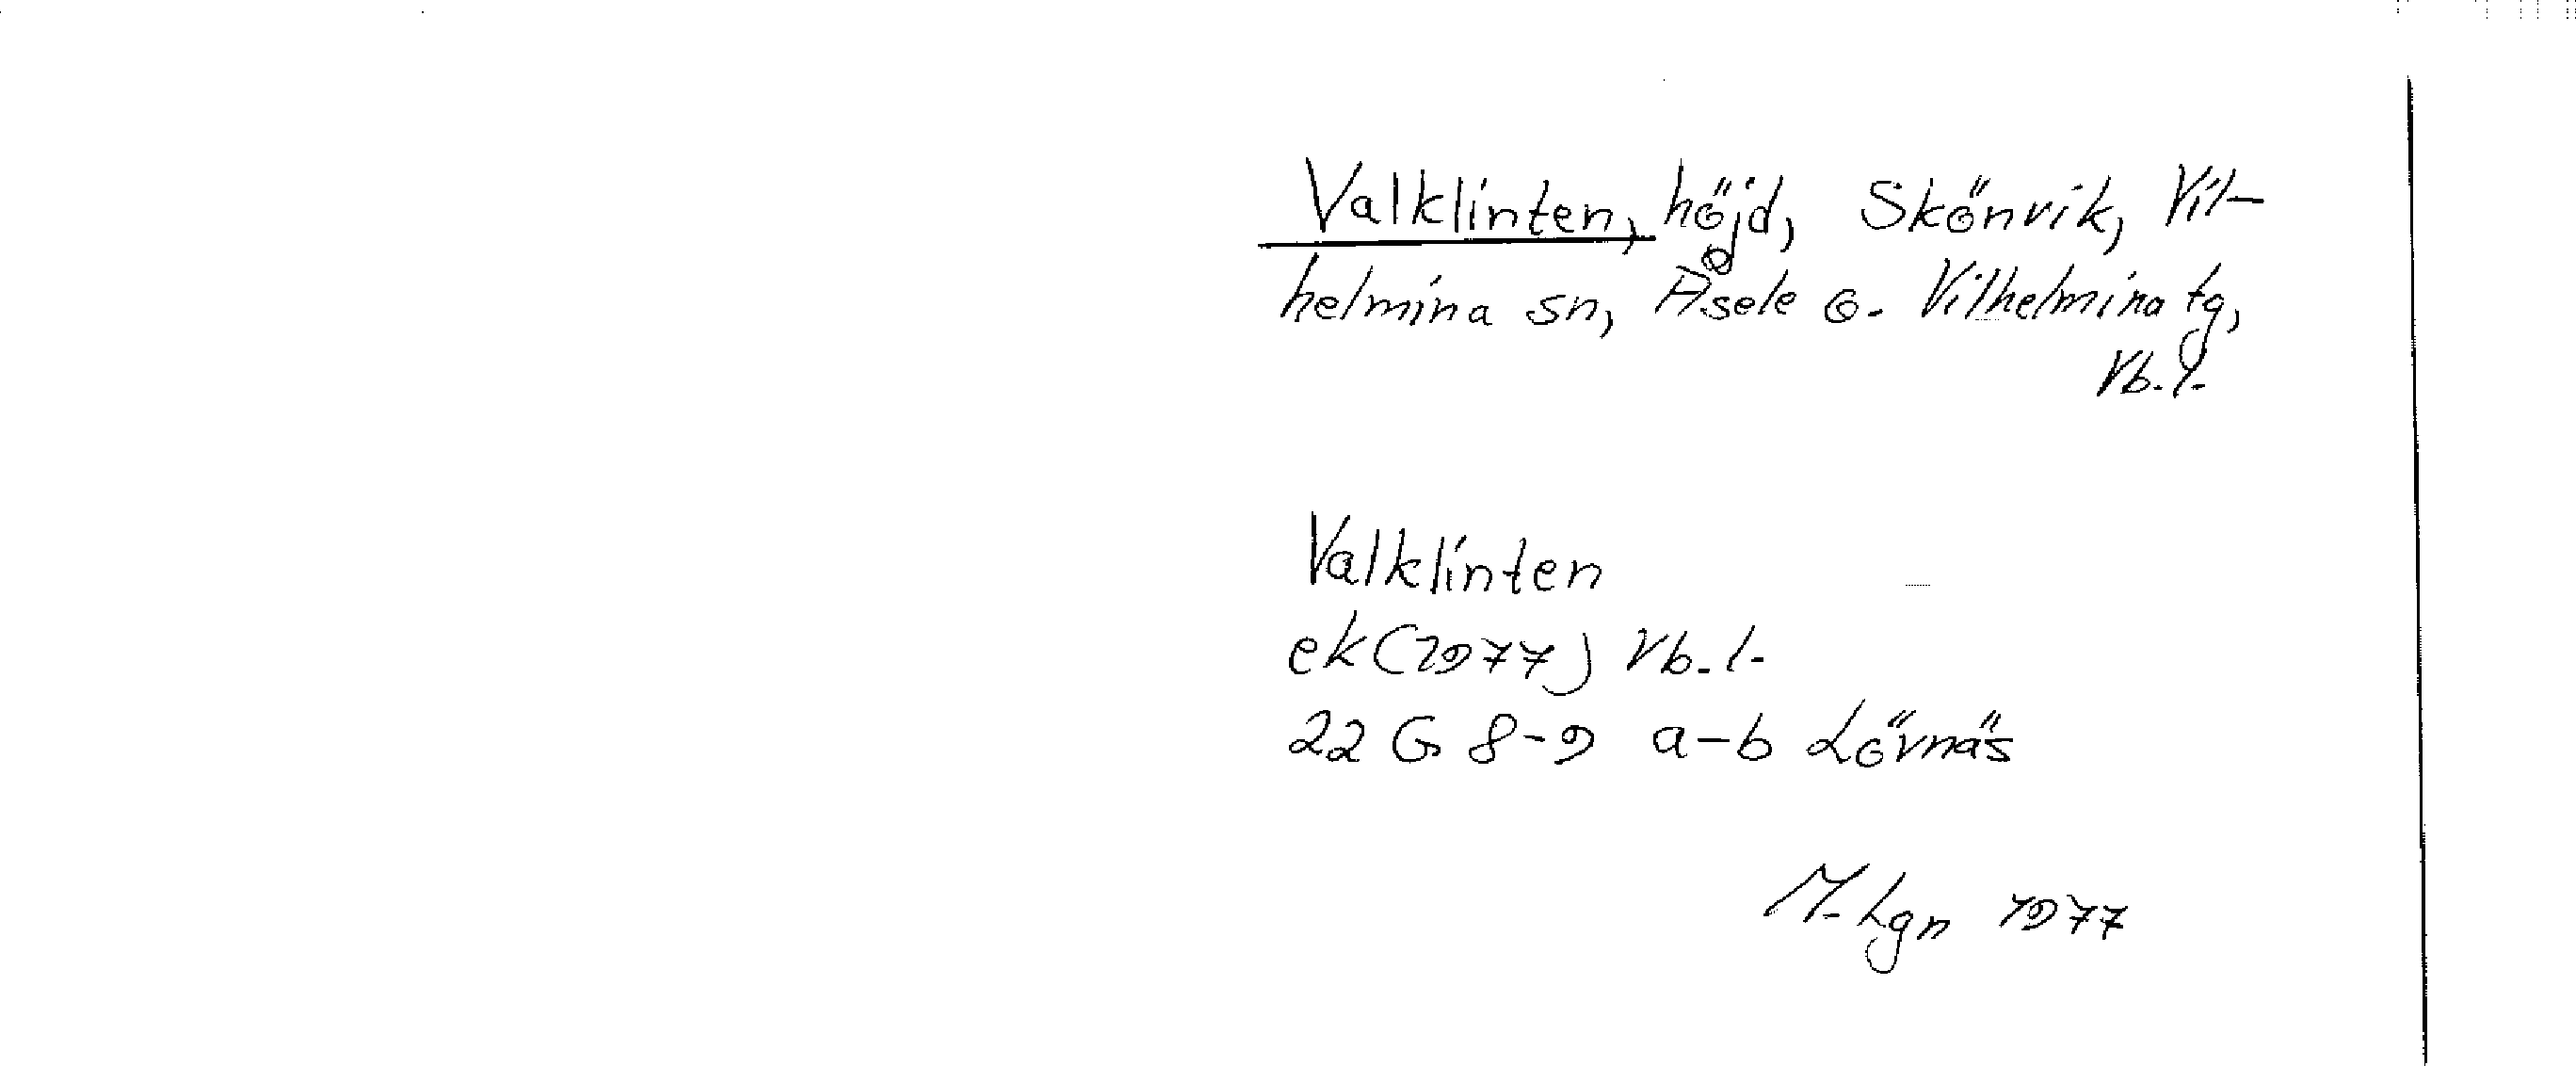 Valklinten, höjd, Skönvik, Vil-
helmina sn, Åsele o. Vilhelmina tg,
Vb.l.
Valklinten
ek (1977) Vb.l.
22 G 8-9 a-b Lövnäs
M. Lgn 1977